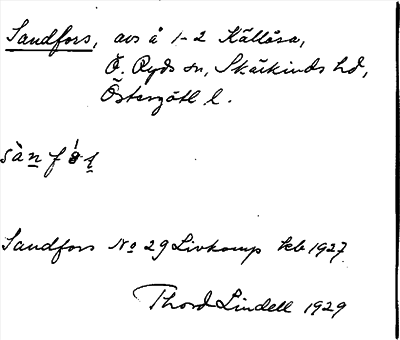 Sandfors, avs å 1-2 Källåsa,
Ö. Ryds sn, Skärkinds hd,
Östergötl l.
sàn fó̀s̩
Sandfors No 29 Livkomp kb 1927
Thord Lindell 1929